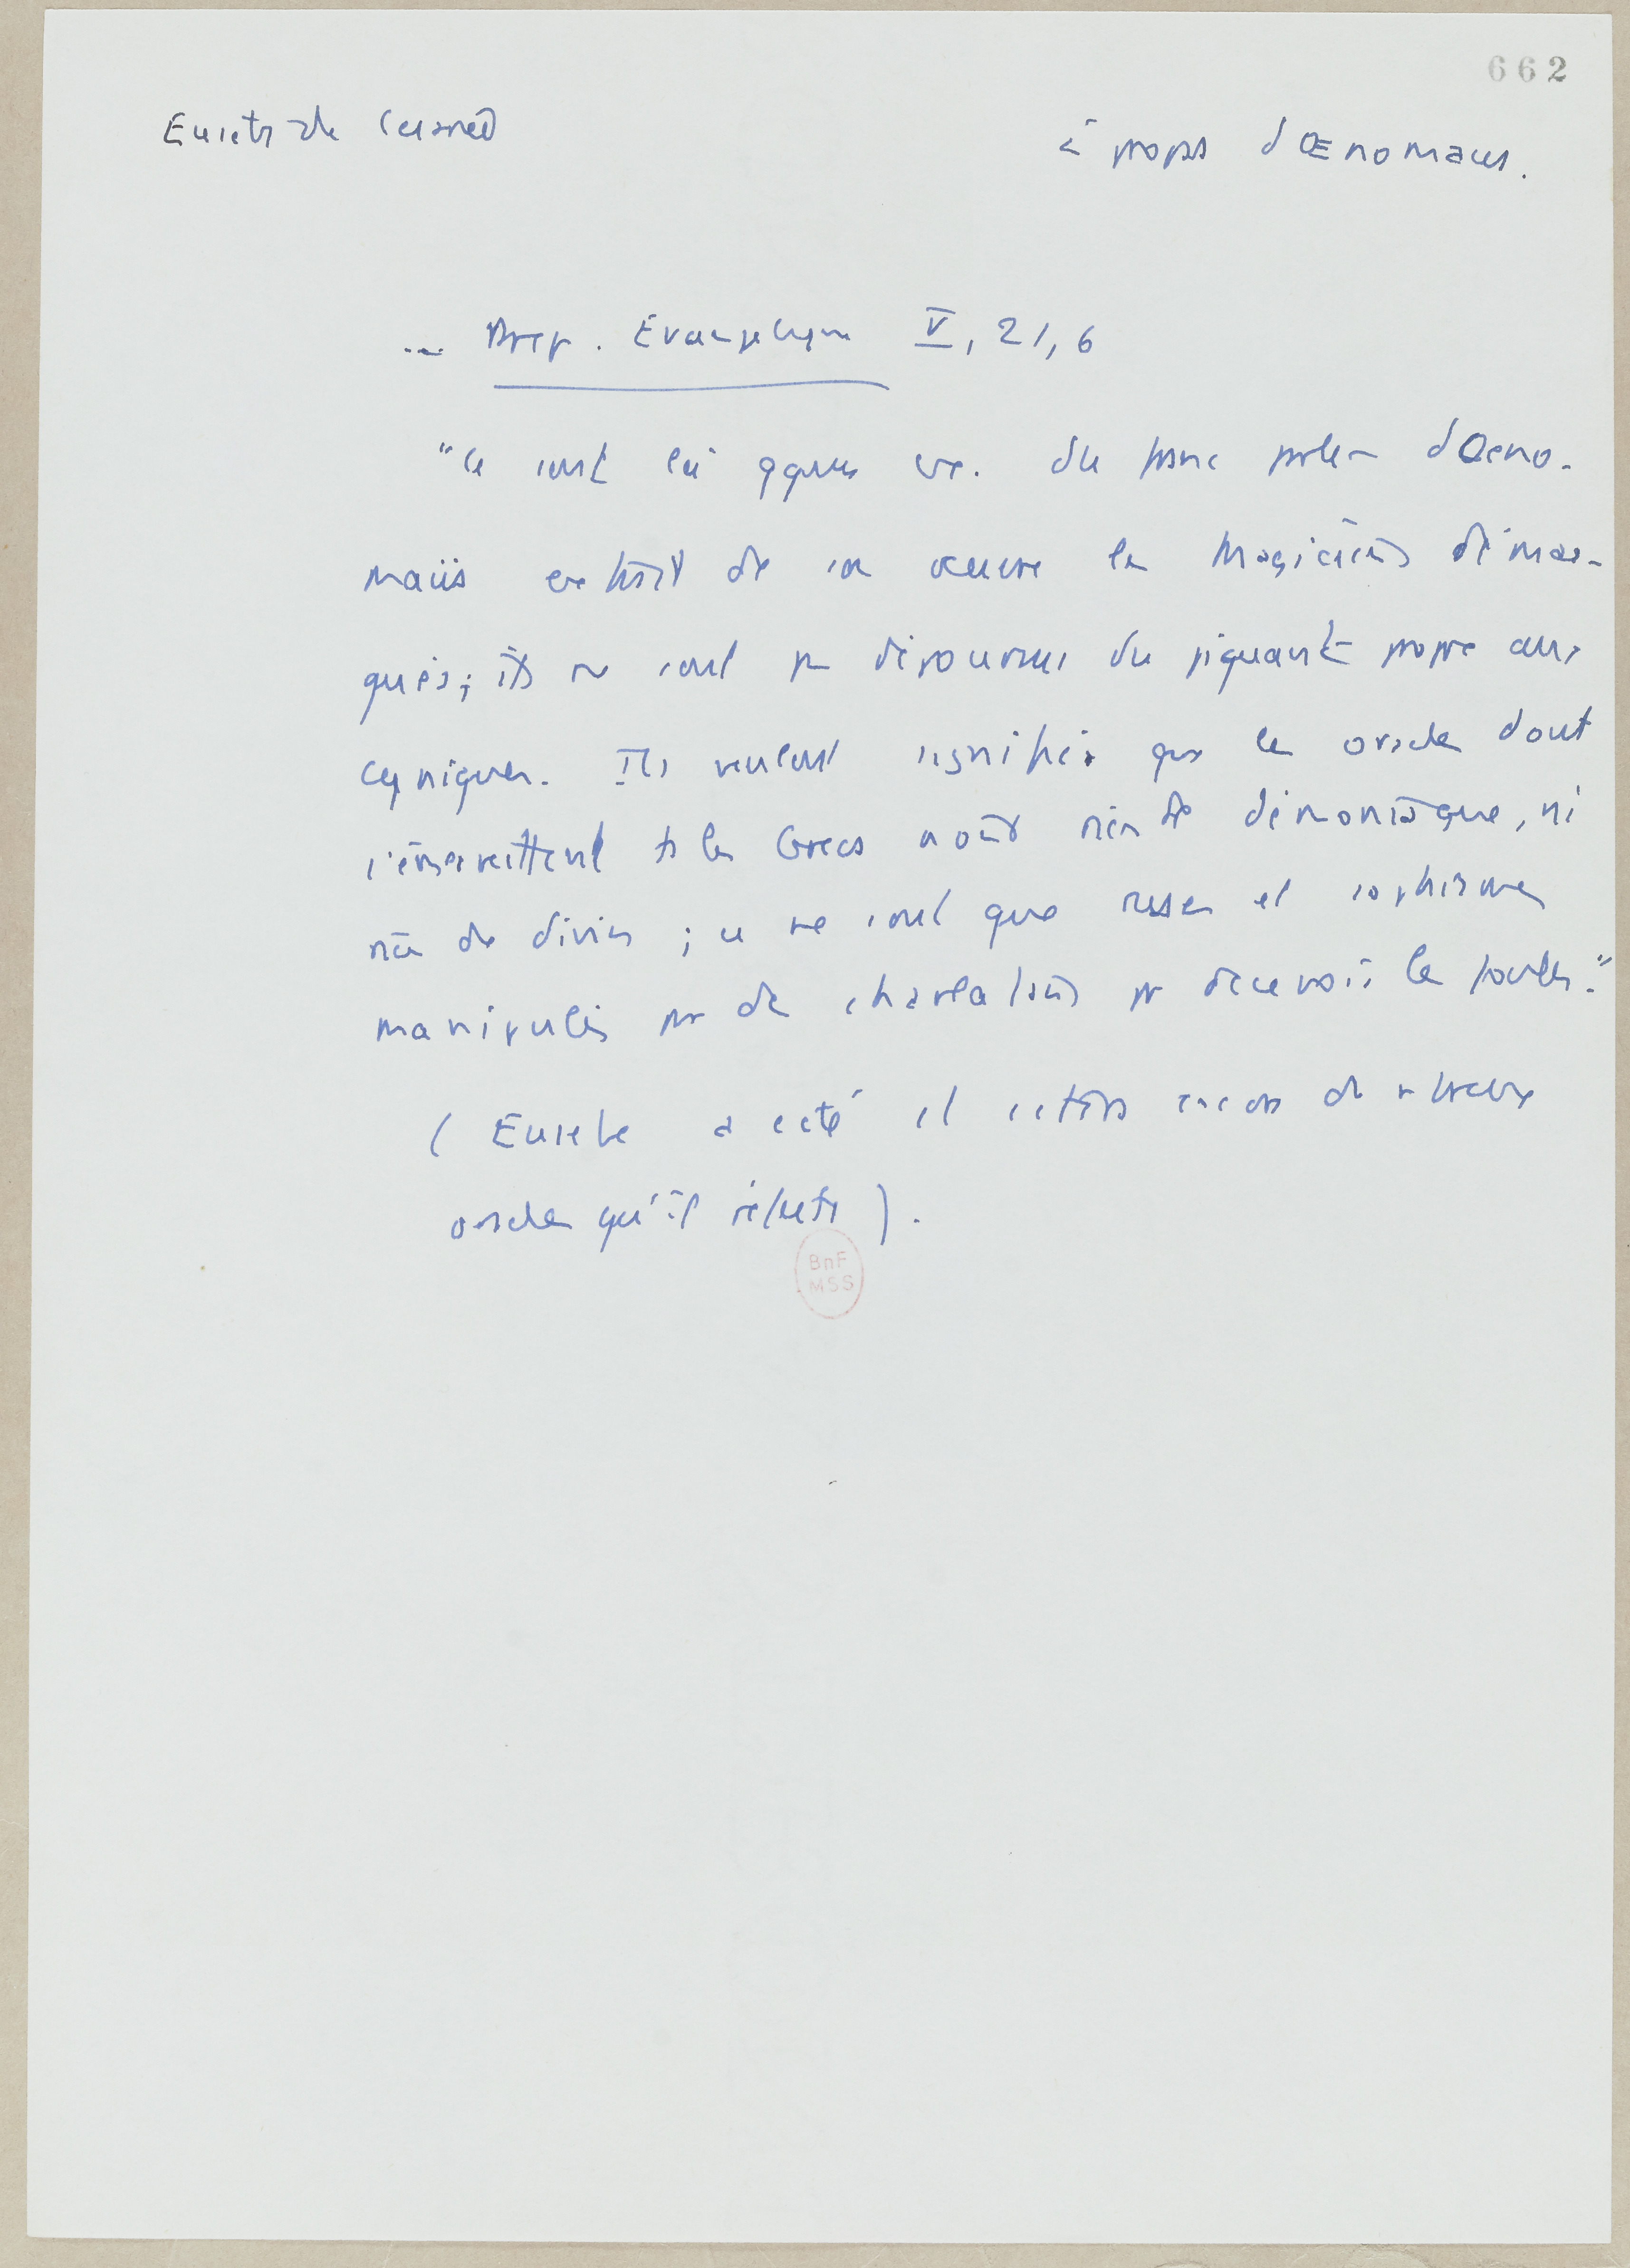 662
Eusèbe de Césarée
à propos d'Œnomaus.
... Prep. Evangelique V, 21, 6
"Ce sont là qques ex. du franc parler d'Oeno-
maüs extrait de son œuvre les Magiciens démas-
qués; ils ne sont pas dépourvus du piquant propre aux
cyniques. Ils veulent signifier que les oracles dont
s'émerveillent ts les Grecs n'ont rien de démoniaque, ni
rien de divin ; ce ne sont que ruses et sophismes
manipulés par des charlatans pr decevoir les foules."
(Eusebe a cité et citera encore de nbreux
oracles qu'il réfute).
BnF
MSS